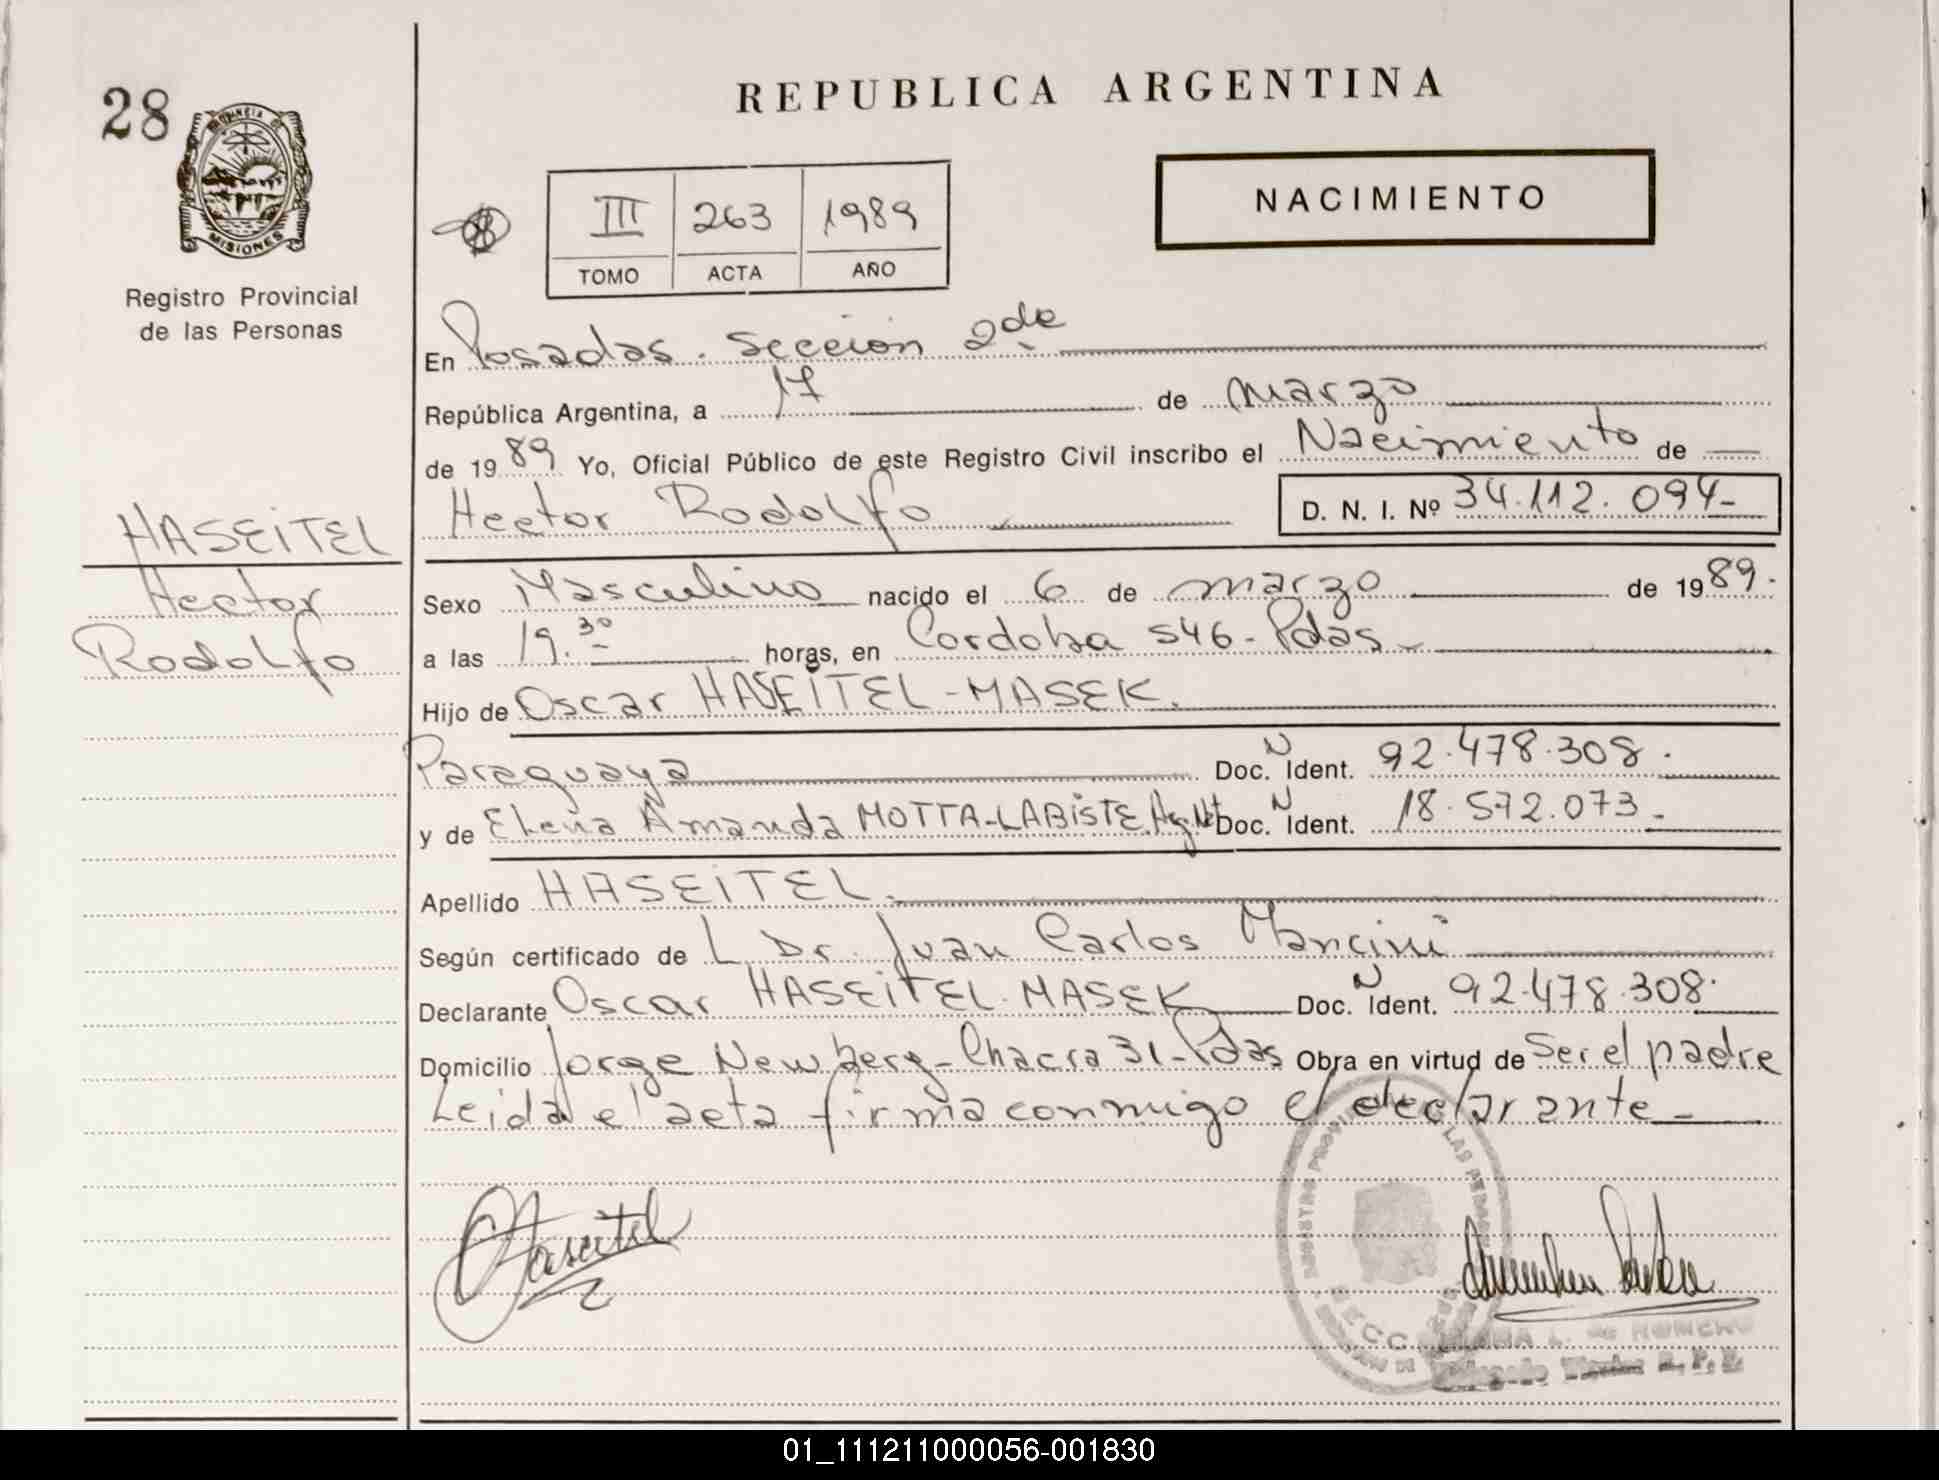 28
PROVINCIA DE
MISIONES
Registro Provincial
de las Personas
HASEITEL
Hector
Rodolfo
REPUBLICA ARGENTINA
III 263 1989
TOMO ACTA AÑO
NACIMIENTO
En Posadas. Seccion 2da
República Argentina, a 17 de Marzo
de 1989 Yo, Oficial Público de este Registro Civil inscribo el Nacimiento de
Hector Rodolfo D. N. I. Nº 34.112.094-
Sexo Masculino nacido el 6 de marzo de 1989.
a las 19.30 horas, en Cordoba 546- Pdas-
Hijo de Oscar HASEITEL-MASEK.
Paraguaya Doc. N Ident. 92.478.308.
y de Elena Amanda MOTTA-LABISTE. Doc. N Ident. 18.572.073-
Apellido HASEITEL.
Según certificado de L Dr. Juan Carlos Mancini
Declarante Oscar HASEITEL-MASEK Doc. N Ident. 92.478.308.
Domicilio Jorge Newbery-Chacra 31-Pdas Obra en virtud de Ser el padre
Leida el acta firma conmigo el declarante-
Haseitel
01_111211000056-001830